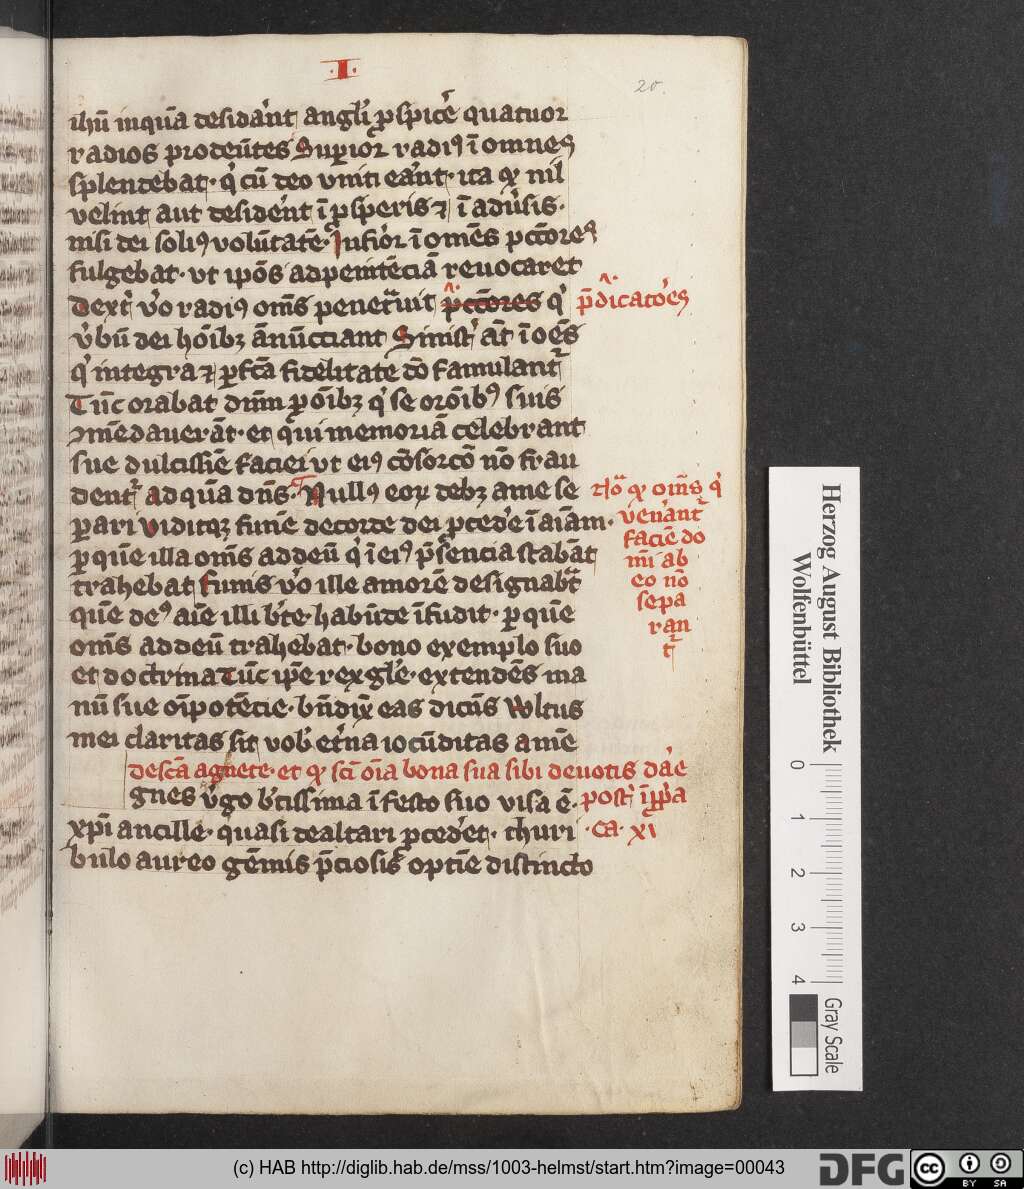 .I.
20.
ihū inquā desidãnt angli ꝑspicẽ quatuor
radios prodeūtes Superior radiꝰ ī omnes
splendebat · q cū deo uniti eãnt · ita ꝙ nil
velint aut desidẽnt ī ꝓsperis ⁊ ī adũsis ·
nisi dei soliꝰ volūtatē · Infior ī omēs pctōres
fulgebat · ut ipōs ad penitēciā reuocaret
Dext̃ ṽo radiꝰ om̄s penet̃uit p̄ctōres q̃ p̄dicatōes
ṽbū dei hōibꝫ ānūcciant Sinist̃ āt ī oēs
q̃ integra ⁊ ꝑfcā fidelitate dō famulant̃
Tūc orabat dn̄m ꝓ oībꝫ q̃ se orōibꝰ suis
ɔmēdauerāt · et q̃ ui memoriā celebrant
sue dulcissīe faciei ut eiꝰ cōsorcō nō frau
dent̃ ad quā dn̄s · Nullꝰ eoꝝ debꝫ a me se
ꝑari viditqꝫ funē de corde dei ꝓcedẽ ī aīam ·
ꝑ quē illa om̄s ad deū q̃ ī eiꝰ p̄sencia stabāt
trahebat funis ṽo ille amorē designabt̃
quē deꝰ aīe illi bt̄e · habūde īfudit · ꝑ quē
om̄s ad deū trahebat · bono exemplo suo
et doctrina Tūc ip̄e rex glẽ · extendēs ma
nū sue oīpotēcie · bn̄dix̃ eas dicēs Vvltus
mei claritas sit vob̃ et̃na iocūditas amē
rō ꝙ om̄s q̃
venãnt̃
faciē do
mī ab
eo nō
sepa
ran
t̃
de scā agnete · et ꝙ scī oīa bona sua sibi deuotis dãe
gnes ṽgo bt̄issima ī festo suo visa ē · post̃ īp̄p̄a
xpī ancille · quasi de altari ꝓcedẽt · thuri · ca · xi
bulo aureo gēmis p̄ciosis optīe distincto
Herzog August Bibliothek
Wolfenbüttel
0 1 2 3 4
Gray Scale
(c) HAB http://diglib.hab.de/mss/1003-helmst/start.htm?image=00043
DFG
cc BY SA